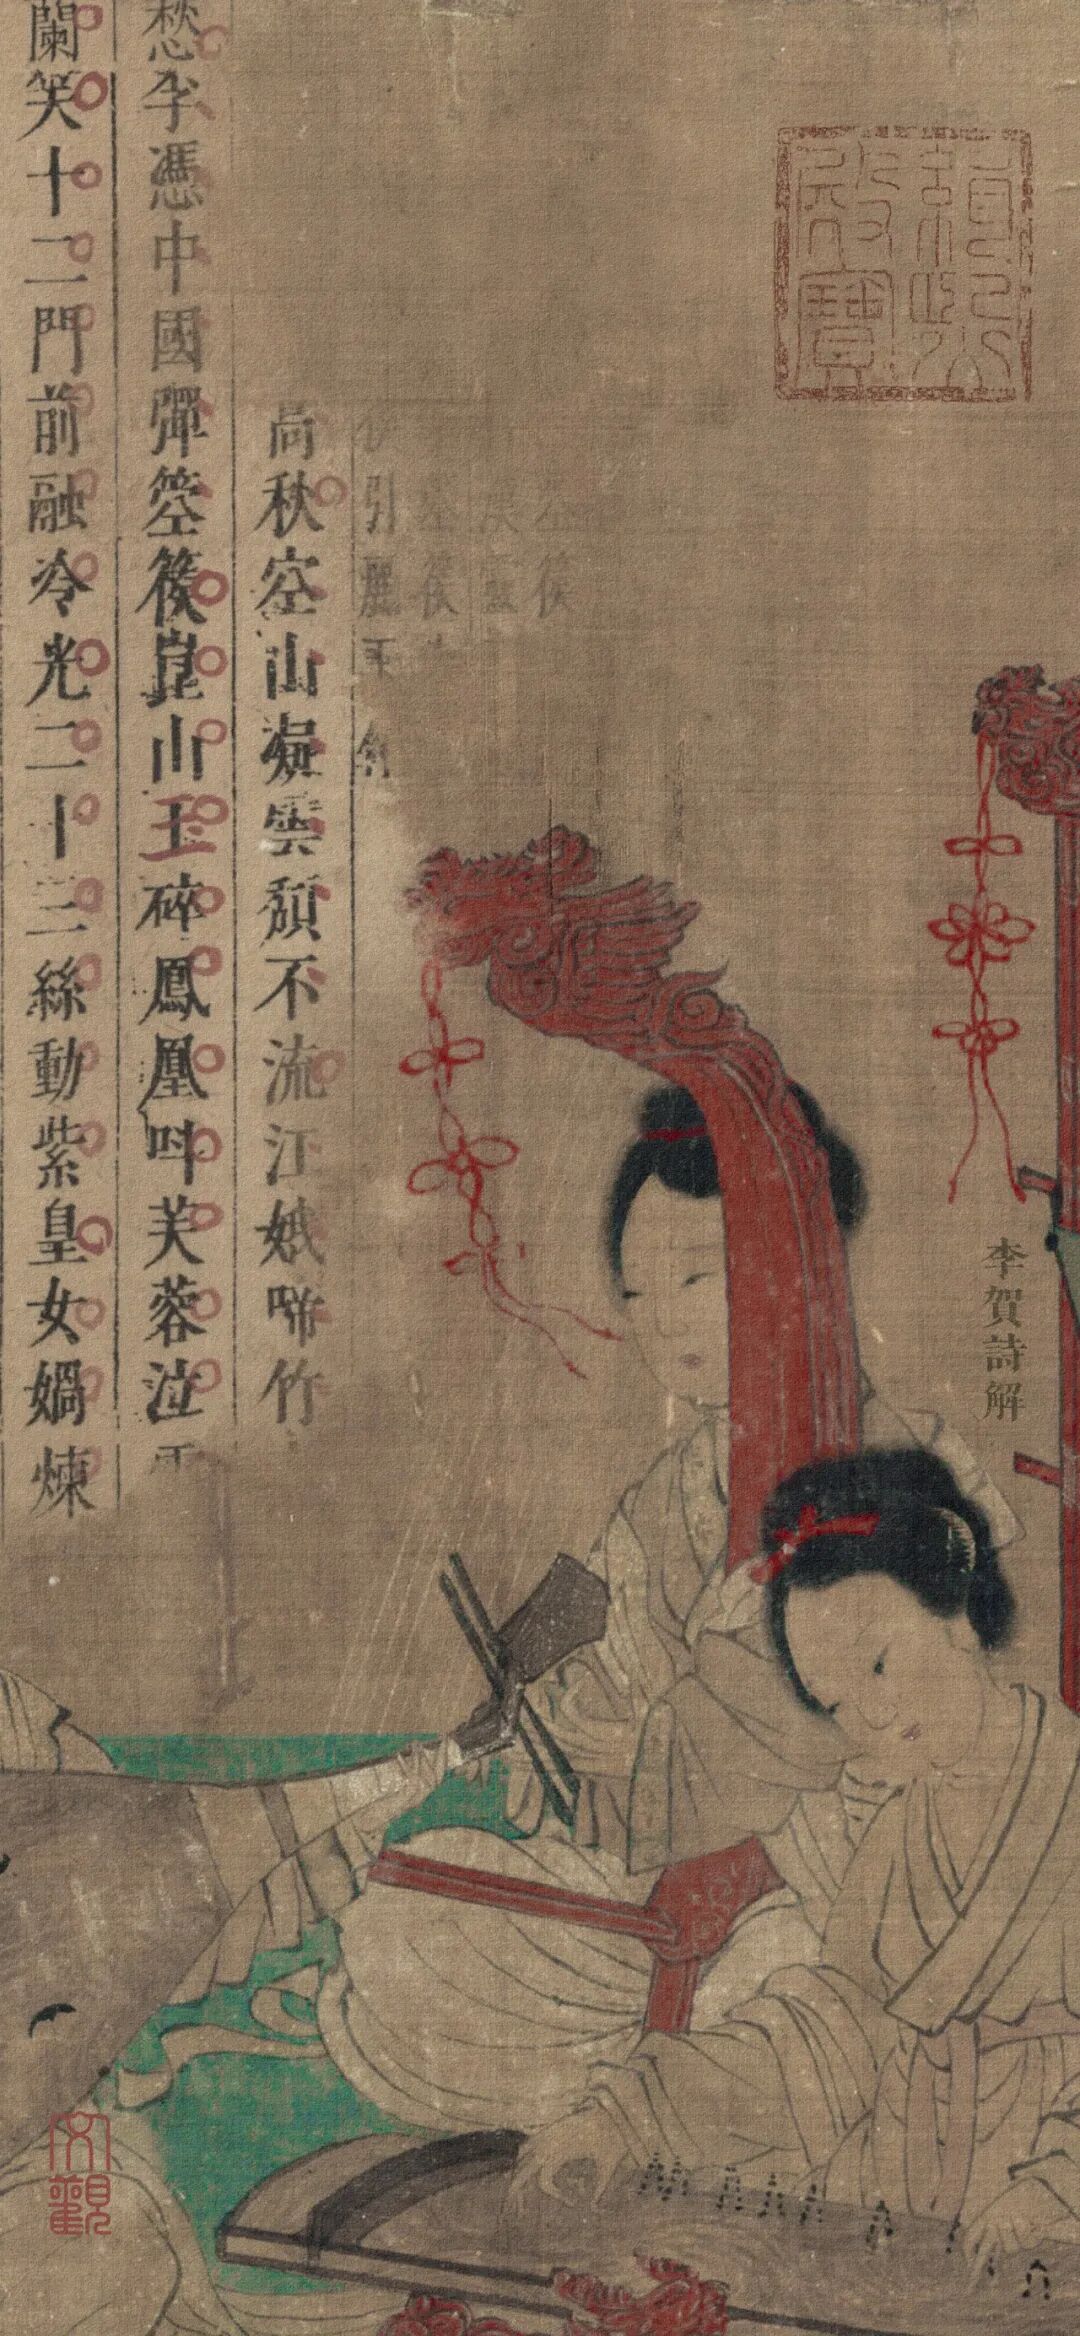 緝熙
殿寶
李賀詩解
箜篌
秋空山凝雲頹不流江娥啼竹
愁李憑中國彈箜篌崑山玉碎鳳凰叫芙蓉泣
蘭笑十二門前融冷光二十三絲動紫皇女媧煉
文觀